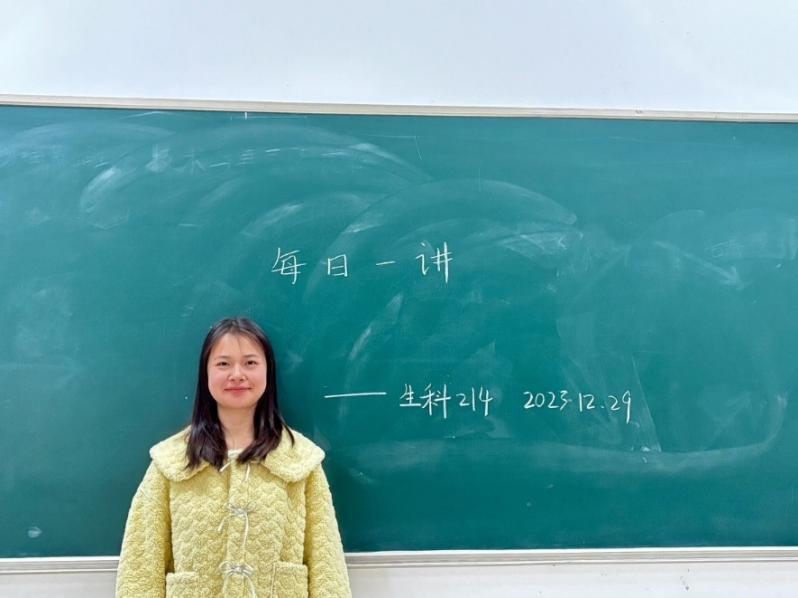 每日一讲
——生科214 2023.12.29